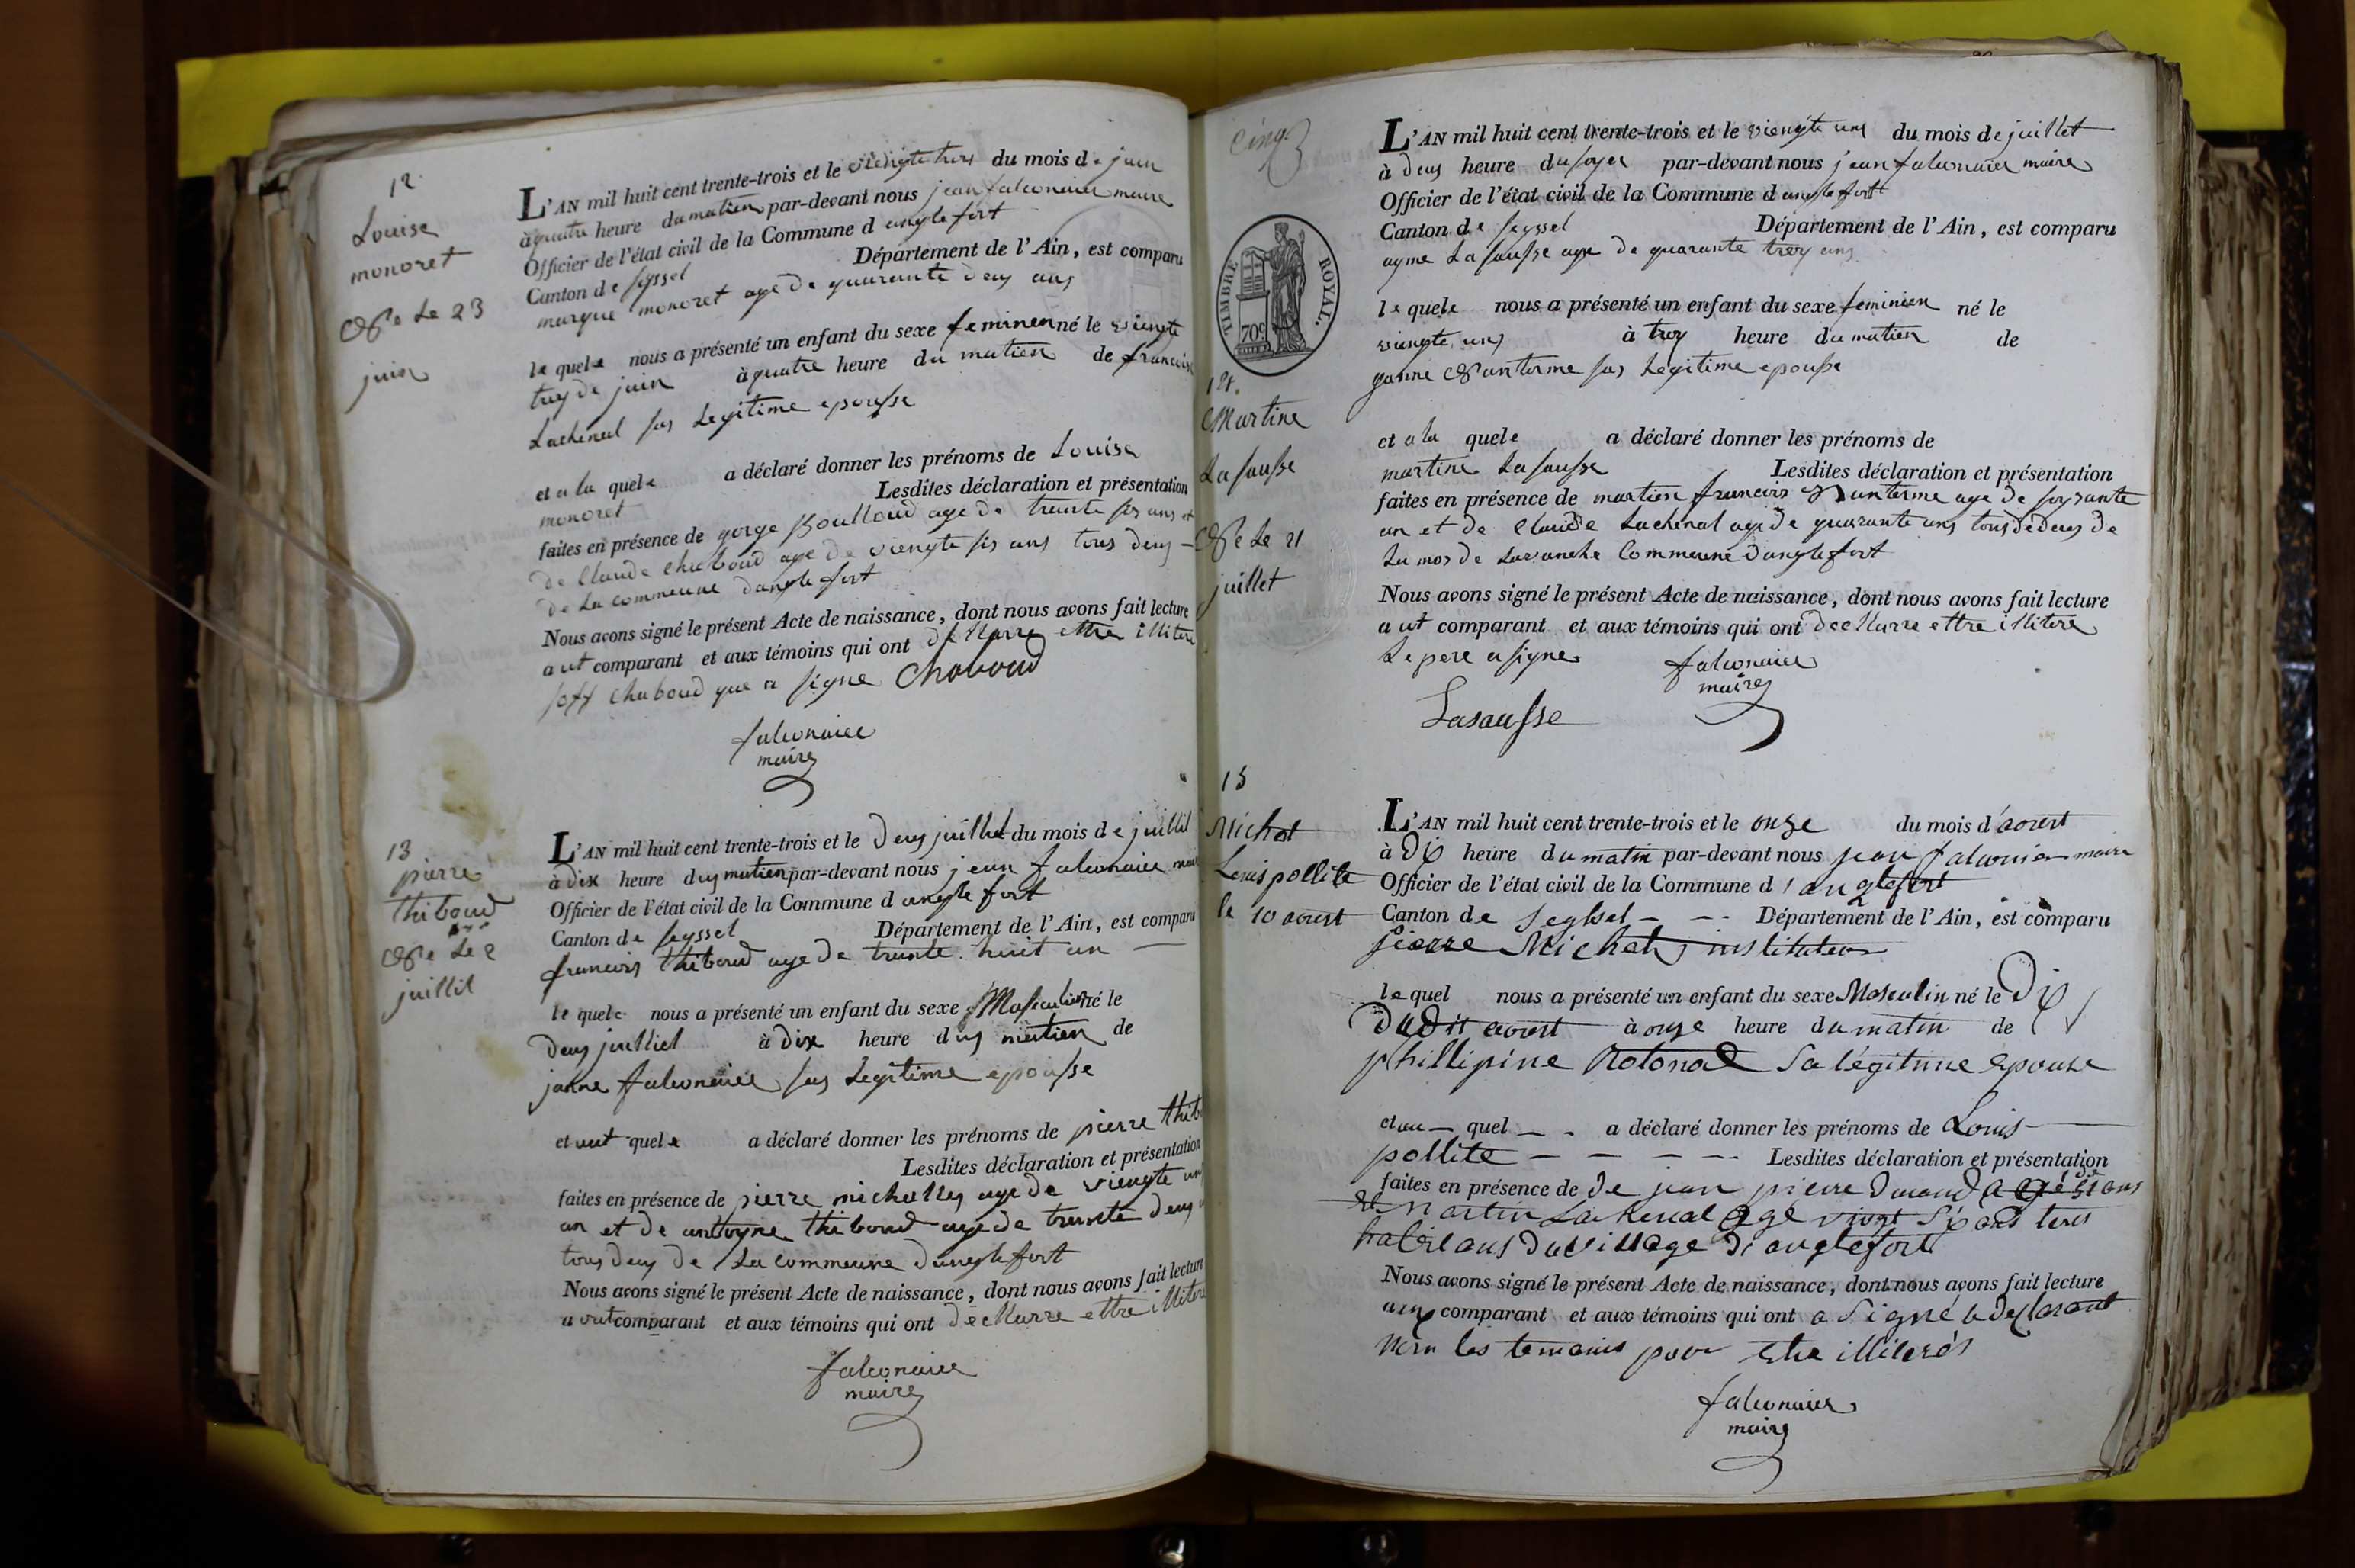 12
Louise
monoret
Née Le 23
juin
L'AN mil huit cent trente-trois et le viengte troys du mois de juin
à quatre heure du matien par-devant nous jean falconnier maire
Officier de l'état civil de la Commune d anglefort
Canton de seyssel Département de l'Ain, est comparu
marque monoret age de quarante deus ans
le quele nous a présenté un enfant du sexe feminen né le viengte
troy de juin à quatre heure du matien de francoise
Lachenal sas Legitime epousse
et a la quele a déclaré donner les prénoms de Louise
monoret Lesdites déclaration et présentation
faites en présence de gorge Boulloud age de trante sis ans et
de Claude Chaboud age de viengte sis ans tous deus
de La commeune danglefort
Nous avons signé le présent Acte de naissance, dont nous avons fait lecture
a ut comparant et aux témoins qui ont decllarre ettre illitere
soff Chaboud que a signe Chaboud
falconnier
maire
13
pierre
thiboud
Née Le 2
juillit
L'AN mil huit cent trente-trois et le deus juillet du mois de juillit
à dix heure dus matien par-devant nous jean falconnier
Officier de l'état civil de la Commune d anglefort
Canton de seyssel Département de l'Ain, est comparu
francois thiboud age de trante huit an
le quele nous a présenté un enfant du sexe Masculien né le
deus juilliet à dix heure dus matien de
janne falconnier sas Legitime epousse
et aut quele a déclaré donner les prénoms de pierre thib
Lesdites déclaration et présentation
faites en présence de pierre michelley age de viengte un
an et de antoyne thiboud age de trante deus
tous deus de La commeune danglefort
Nous avons signé le présent Acte de naissance, dont nous avons fait lecture
a ut comparant et aux témoins qui ont decllarre ettre illitere
falconnier
maire
Cinq
TIMBRE ROYAL.
70c
14.
Martine
Lasausse
Née Le 21
juillet
L'AN mil huit cent trente-trois et le viengte uns du mois de juillet
à deus heure du soyer par-devant nous jean falconnier maire
Officier de l'état civil de la Commune d anglefort
Canton de seyssel Département de l'Ain, est comparu
ayme Lasausse age de quarante troy ans
le quele nous a présenté un enfant du sexe feminien né le
viengte uns à troy heure du matien de
ganne Nanterme sas Legitime epousse
et a la quele a déclaré donner les prénoms de
martine Lasausse Lesdites déclaration et présentation
faites en présence de martien francois Nanterme age de soysante
an et de Claude Lachenal age de quarante ans tous de deus de
La mos de Lavanche Commeune danglefort
Nous avons signé le présent Acte de naissance, dont nous avons fait lecture
a ut comparant et aux témoins qui ont decllarre ettre illitere
Le pere a signe falconnier
maire
Lasausse
15
Michat
Louis pollite
le 10 aoust
L'AN mil huit cent trente-trois et le onze du mois d'aoust
à Dix heure du matin par-devant nous jean falconier maire
Officier de l'état civil de la Commune d'anglefort
Canton de Seyssel Département de l'Ain, est comparu
pierre Michat instituteur
le quel nous a présenté un enfant du sexe Masculin né le Dix
Dudit aoust à onze heure du matin de
phillipine Rotonod Sa légitime Epouse
et au quel a déclaré donner les prénoms de Louis
pollite Lesdites déclaration et présentation
faites en présence de de jean pierre Durand agé de 51 ans
et Martin Lachenal agé vingt Six ans tous
habitans du village d'anglefort
Nous avons signé le présent Acte de naissance, dont nous avons fait lecture
aux comparant et aux témoins qui ont a Signé le declarant
non les temoins pour Estre illiterés
falconnier
maire